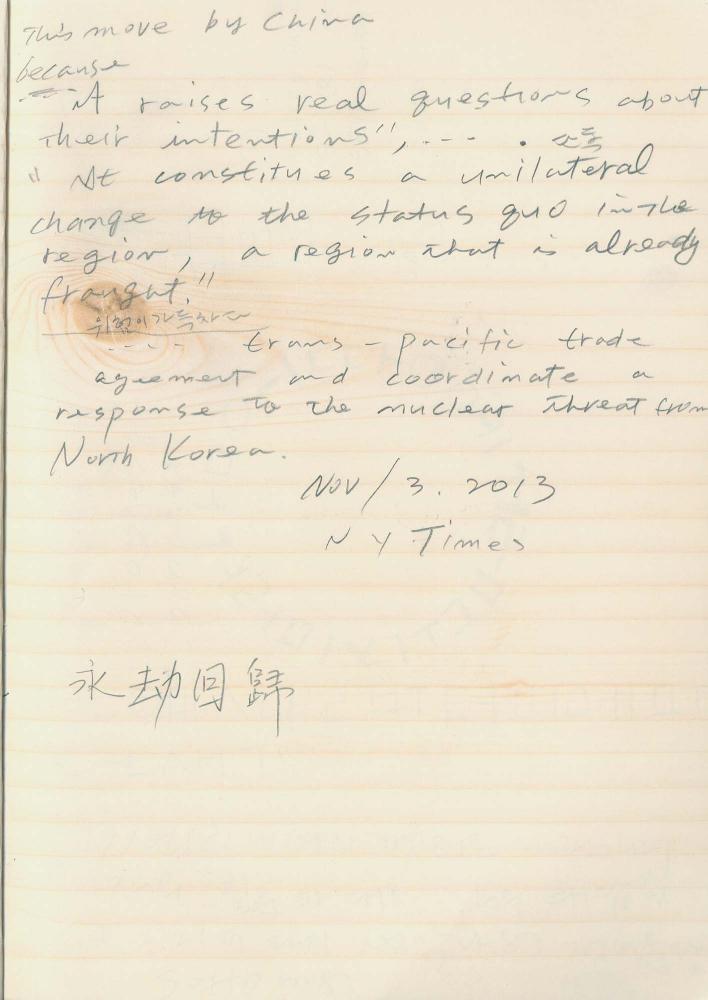 This move by China
because
"It raises real questions about
their intentions", --- . 소득
" It constitues a unilateral
change to the status quo in the
region, a region that is already
fraught."
위험이 가득차다
---- trans-pacific trade
ageement and coordinate a
response to the nuclear threat from
North Korea.
Nov / 3. 2013
N Y Times
永劫回歸